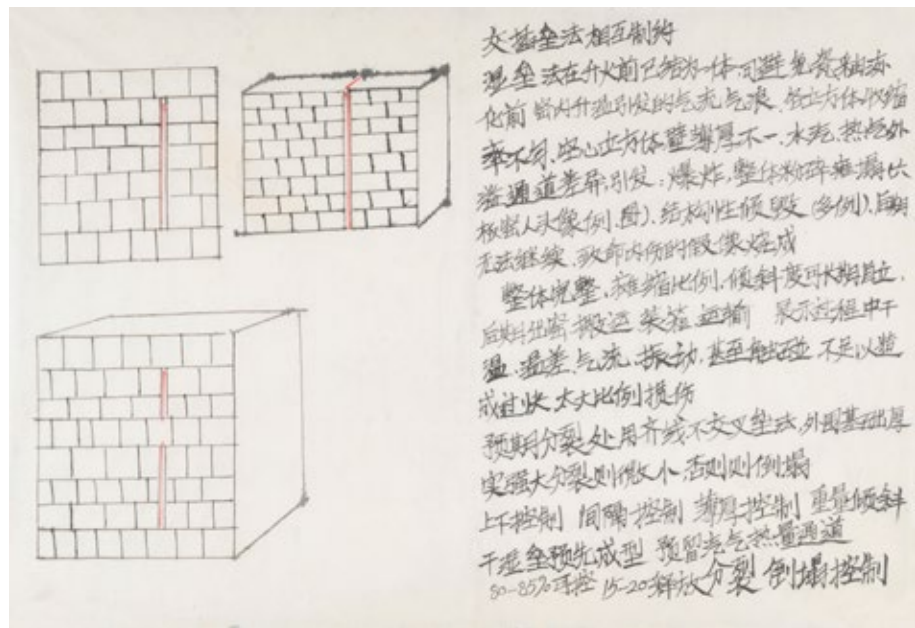 交错垒法相互制约
湿垒法在升火前已结为一体,可避免瓷釉冻
化前窑内升温引发的气流气浪,
率不匀,空心立方体壁薄厚不一,水汽、热气外
溢通道差异引发:爆炸,整体粉碎瘫塌(
人头像例,图),结构刚性倾毁(多例),后期
无法继续,致命内伤的假像烧成
整体完整,瘫缩比例,倾斜度可长期自立,
后期出窑搬运 装箱 运输 展示过程中干
湿、温差、气流、振动,甚至触碰 不足以造
成过快,太大比例损伤
预期分裂处用齐线不交叉垒法,外围基础厚
实强大分裂则微小,否则则倒塌
上下控制 间隔控制 薄厚控制 重量倾斜
干湿垒预先成型 预留汽气热量通道
80-85%可控 15-20释放分裂 倒塌控制